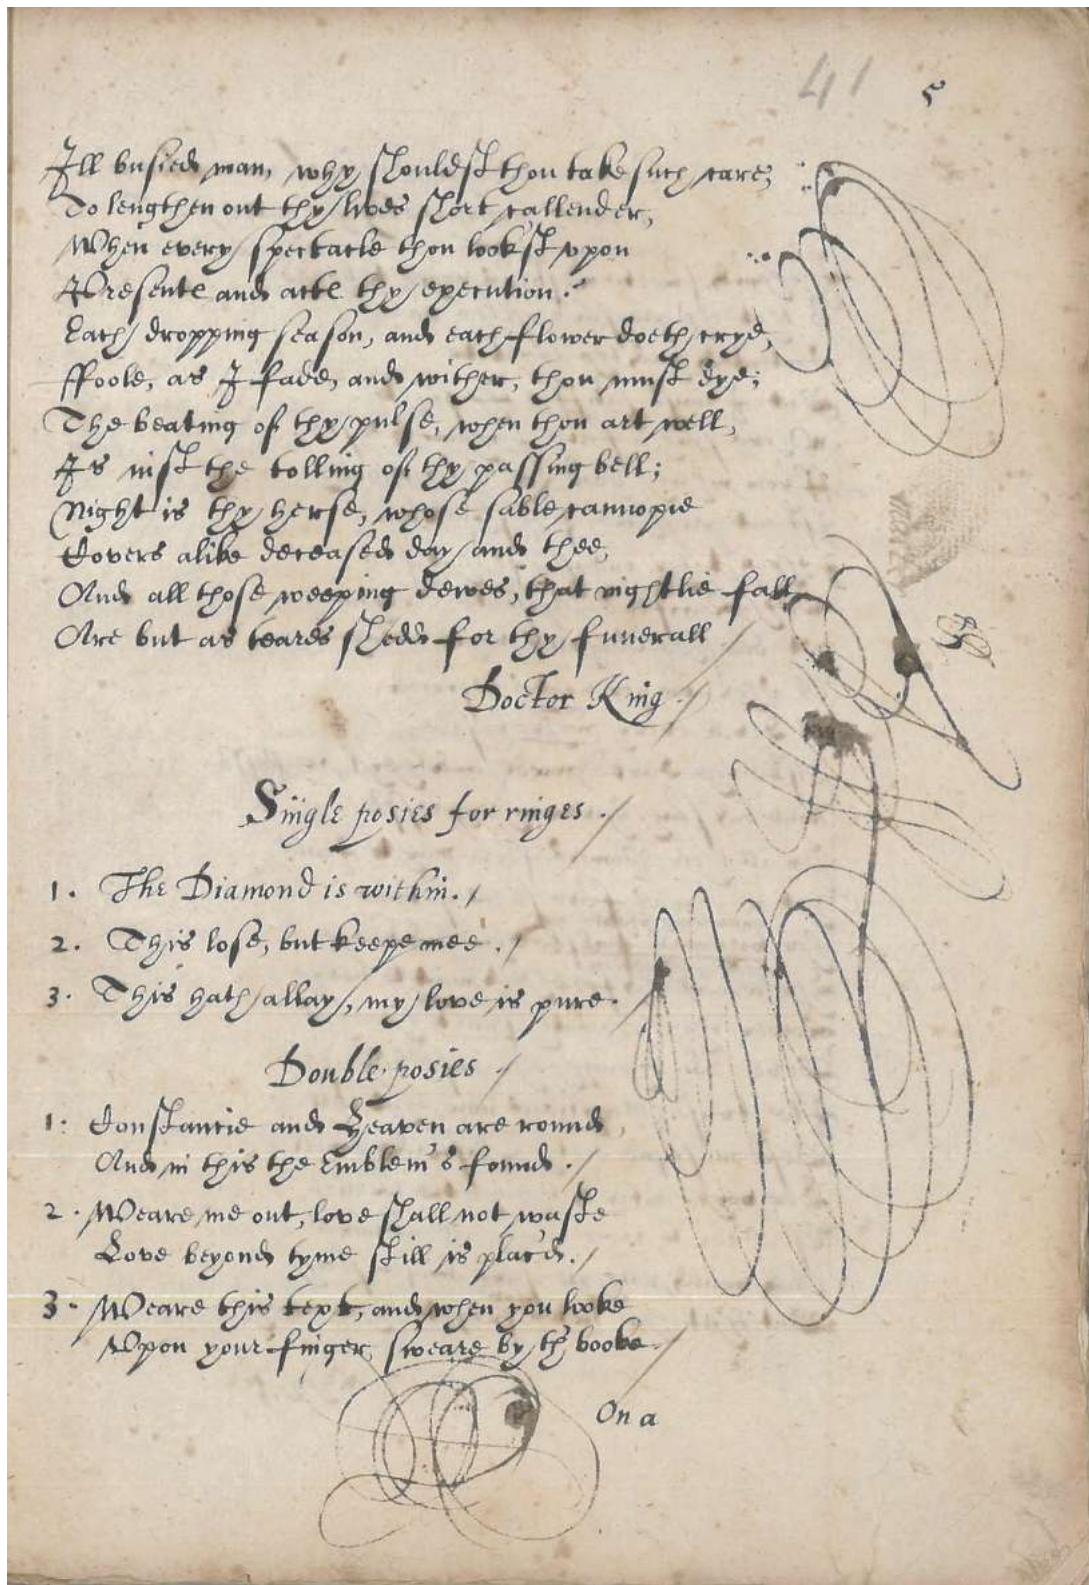 41 5
Ill busied man, why shouldst thou take such care,
To lengthen out thy lives short callender,
When every spectacle thou lookst vpon
Presente and acte thy execution.
Each dropping season, and each flower doeth crye,
ffoole, as I fade, and wither, thou must dye;
The beating of thy pulse, when thou art well,
Is iust the tolling of thy passing bell;
Night is thy herse, whose sable cannopie
Covers alike deceased day and thee,
And all those weeping dewes, that nightlie fall
Are but as teares shedd for thy funerall
Doctor King
Single posies for ringes.
1. The Diamond is within.
2. This lose, but keepe mee.
3. This hath allay, my love is pure.
Double posies
1. Constancie and Heaven are round,
And in this the Emblem's found.
2. Weare me out, love shall not waste
Love beyond tyme still is plac'd.
3. Weare this text, and when you looke
Vpon your finger, sweare by th' booke.
On a